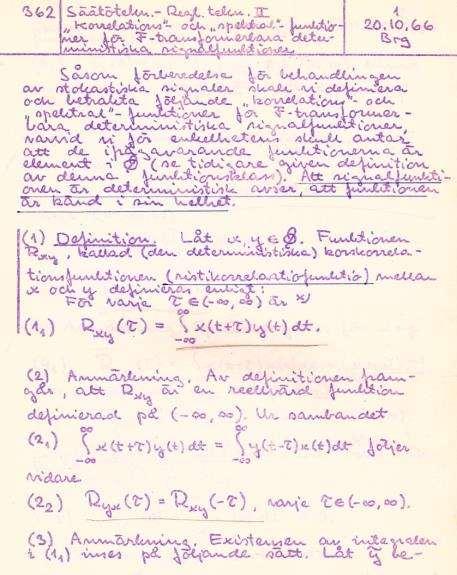 362
Säätötekn.- Regl. tekn. II
„korrelations"- och „spektral"-funktio-
ner för F-transformerbara deter-
ministiska signalfunktioner
1
20.10.66
Brg
Såsom förberedelse för behandlingen
av stokastiska signaler skall vi definiera
och betrakta följande „korrelations"- och
„spektral"-funktioner för F-transformer-
bara deterministiska signalfunktioner,
varvid vi för enkelhetens skull antar,
att de ifrågavarande funktionerna är
element i (se tidigare given definition
av denna funktionsklass). Att signalfunkti-
onen är deterministisk avser, att funktionen
är känd i sin helhet.
(1) Definition. Låt x, y ∈ . Funktionen
Rxy, kallad (den deterministiska) korskorrela-
tionsfunktionen (ristikorrelaatiofunktio) mellan
x och y definieras enligt:
För varje τ ∈ (-∞, ∞) är
(1₁) Rxy(τ) = ∫_{-∞}^{∞} x(t+τ)y(t)dt.
(2) Anmärkning. Av definitionen fram-
går, att Rxy är en reellvärd funktion
definierad på (-∞, ∞). Ur sambandet
(2₁) ∫_{-∞}^{∞} x(t+τ)y(t)dt = ∫_{-∞}^{∞} y(t-τ)x(t)dt följer
vidare
(2₂) Ryx(τ) = Rxy(-τ), varje τ ∈ (-∞, ∞).
(3) Anmärkning. Existensen av integralen
i (1₁) inses på följande sätt. Låt be-